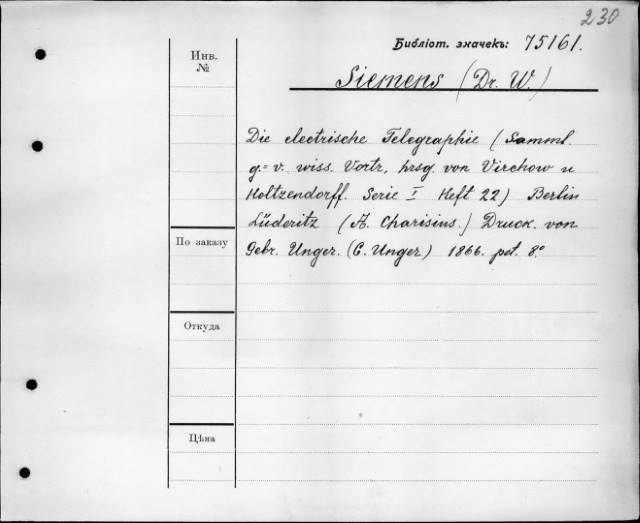 230
Библіот. значекъ: 75161.
Инв.
№
Siemens (Dr. W.)
Die electrische Telegraphie (Samml.
g.=v. wiss. Vortr. hrsg. von Virchow u
Holtzendorff. Serie I Heft 22) Berlin
Lüderitz (A. Charisius.) Druck. von
Gebr. Unger. (C. Unger) 1866. pet. 8.°
По заказу
Откуда
Цѣна